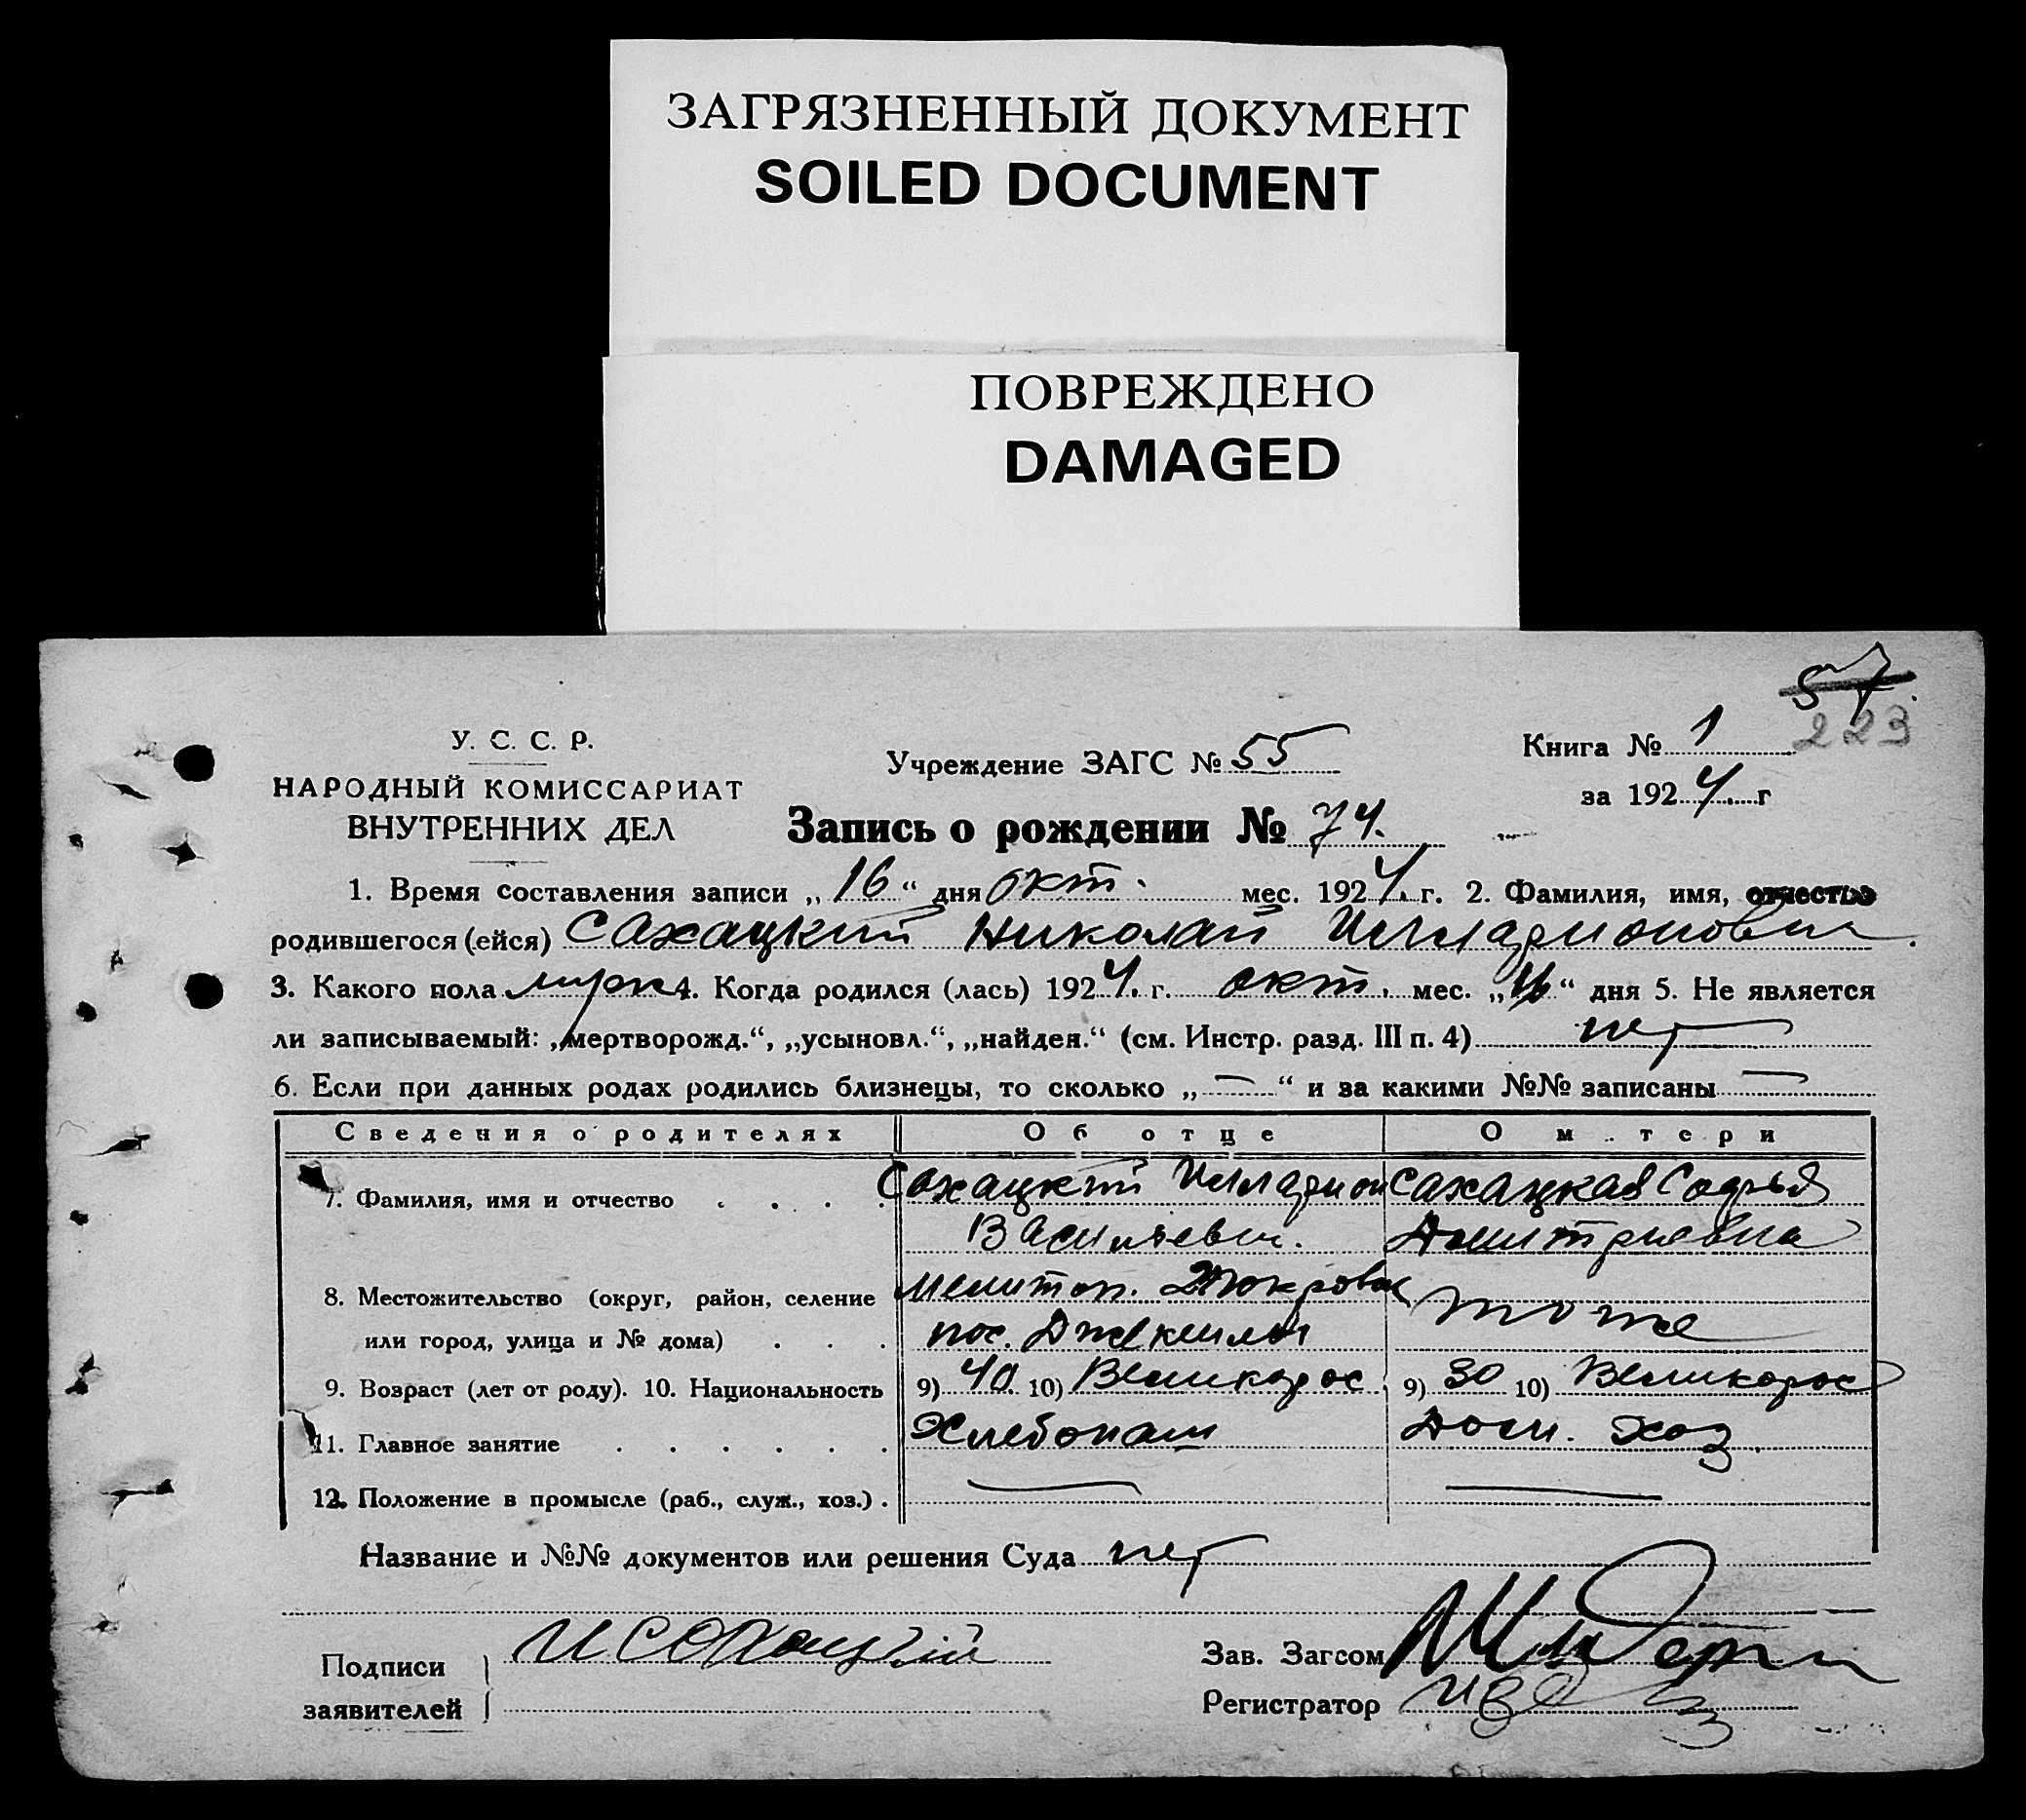 ЗАГРЯЗНЕННЫЙ ДОКУМЕНТ
SOILED DOCUMENT
ПОВРЕЖДЕНО
DAMAGED
57
223
У. С. С. Р.
НАРОДНЫЙ КОМИССАРИАТ
ВНУТРЕННИХ ДЕЛ
Учреждение ЗАГС № 55
Книга № 1
за 1924 г
Запись о рождении № 74.
1. Время составления записи „16“ дня окт. мес. 1924 г. 2. Фамилия, имя, отчество
родившегося (ейся) Сахацкий Николай Илларионович.
3. Какого пола мужс 4. Когда родился (лась) 1924 г. окт. мес. „ “ дня 5. Не является
ли записываемый: „мертворожд.“, „усыновл.“, „найден.“ (см. Инстр. разд. III п. 4) нет
6. Если при данных родах родились близнецы, то сколько „—“ и за какими №№ записаны —
Сведения о родителях Об отце О м тери
7. Фамилия, имя и отчество . . . . Сахацкий Илларион Сахацкая Софья
Васильевич. Дмитриевна
8. Местожительство (округ, район, селение Мелитоп. Покровск тоже
или город, улица и № дома) . . . пос.
9. Возраст (лет от роду). 10. Национальность 9) 40 10) Великорос 9) 30 10) Великорос
11. Главное занятие . . . . . . Хлебопаш Дом. хоз.
12. Положение в промысле (раб., служ., хоз.) . — —
Название и №№ документов или решения Суда нет
Подписи И Сохацкий Зав. Загсом
заявителей Регистратор